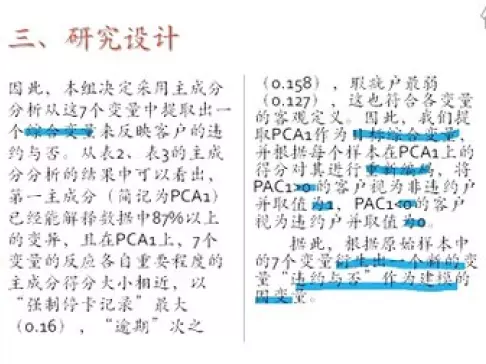 三、研究设计
因此，本组决定采用主成分
分析从这7个变量中提取出一
个综合变量来反映客户的违
约与否。从表2、表3的主成
分分析的结果中可以看出，
第一主成分（简记为PCA1）
已经能解释数据中87%以上
的变异，且在PCA1上，7个
变量的反应各自重要程度的
主成分得分大小相近，以
“强制停卡记录”最大
（0.16），“逾期”次之
（0.158），瑕疵户最弱
（0.127），这也符合各变量
的客观定义。因此，我们提
取PCA1作为目标综合变量，
并根据每个样本在PCA1上的
得分对其进行重新编码，将
PAC1>0的客户视为非违约户
并取值为1，PAC1<0的客户
视为违约户并取值为0。
据此，根据原始样本中
的7个变量衍生出一个新的变
量“违约与否”作为建模的
因变量。